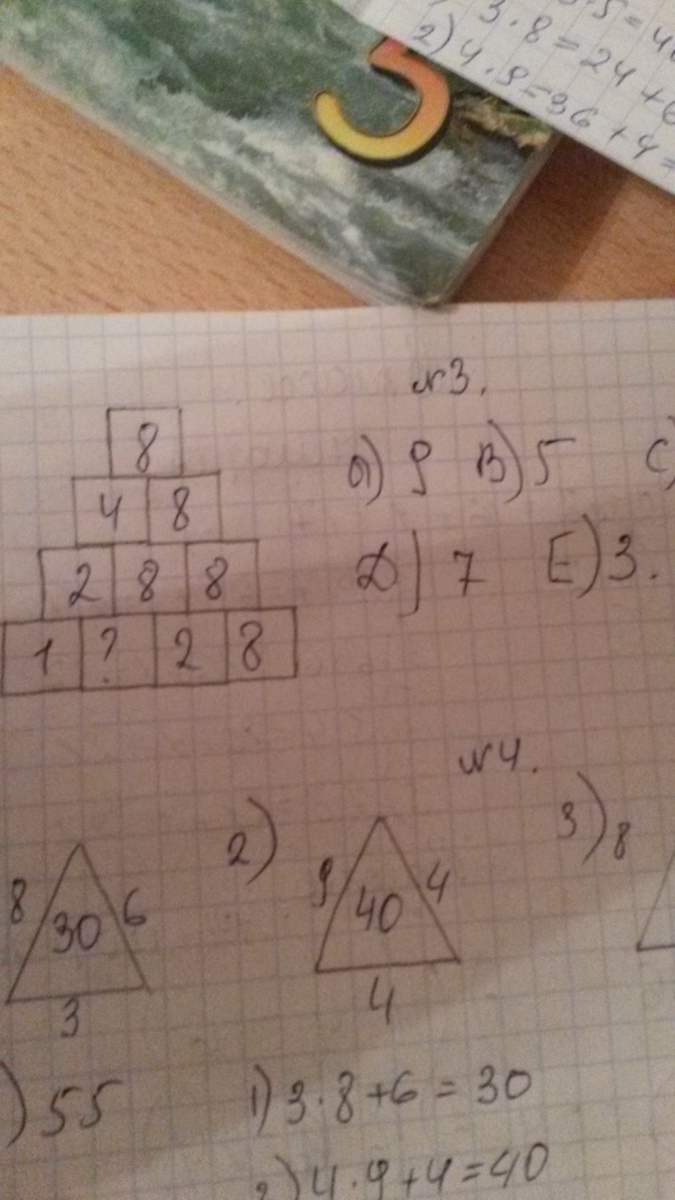 ·5=40
3·8=24+6
2) 4·9=36+4=
5
№3.
8
4 8
2 8 8
1 ? 2 8
А) 9 В) 5 С)
Д) 7 Е) 3.
№4.
8 30 6 3
2) 9 40 4 4
3) 8
) 55
1) 3·8+6=30
2) 4·9+4=40